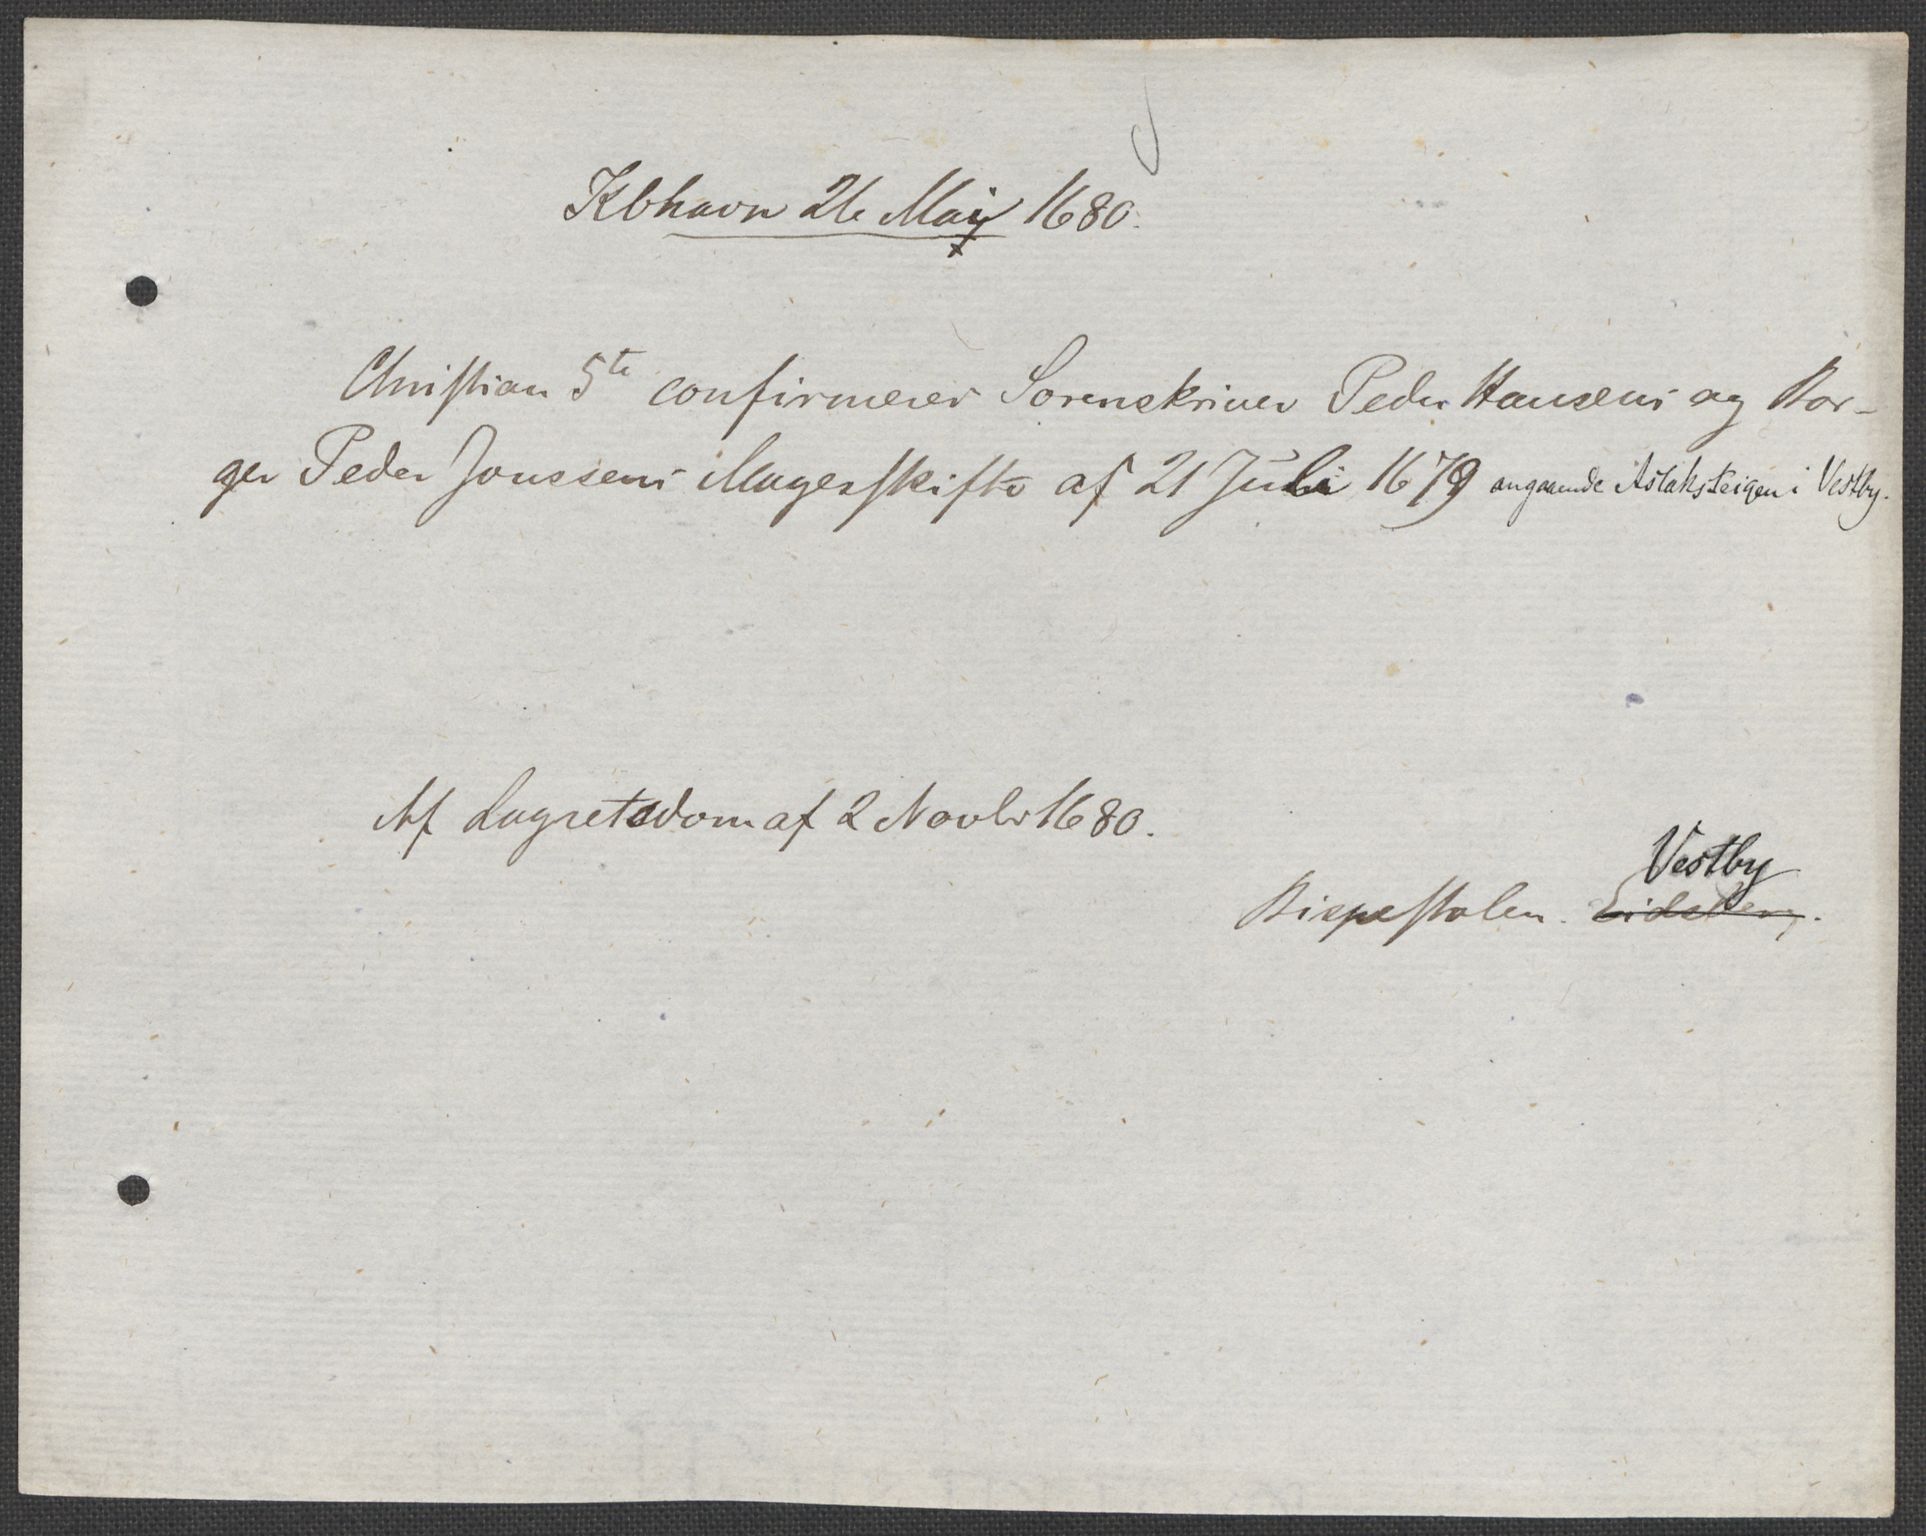 Kbhavn 26 Maj 1680.
Christian 5te confirmerer Sorenskriver Peder Hansens og Bor-
ger Peder Jonssens Magerskifte af 21 Juli 1679 angaaende Aslaksteigen i Vestby.
Af Lagretsdom af 2 Novbr 1680.
Vestby
Bispestolen. Eidsberg.